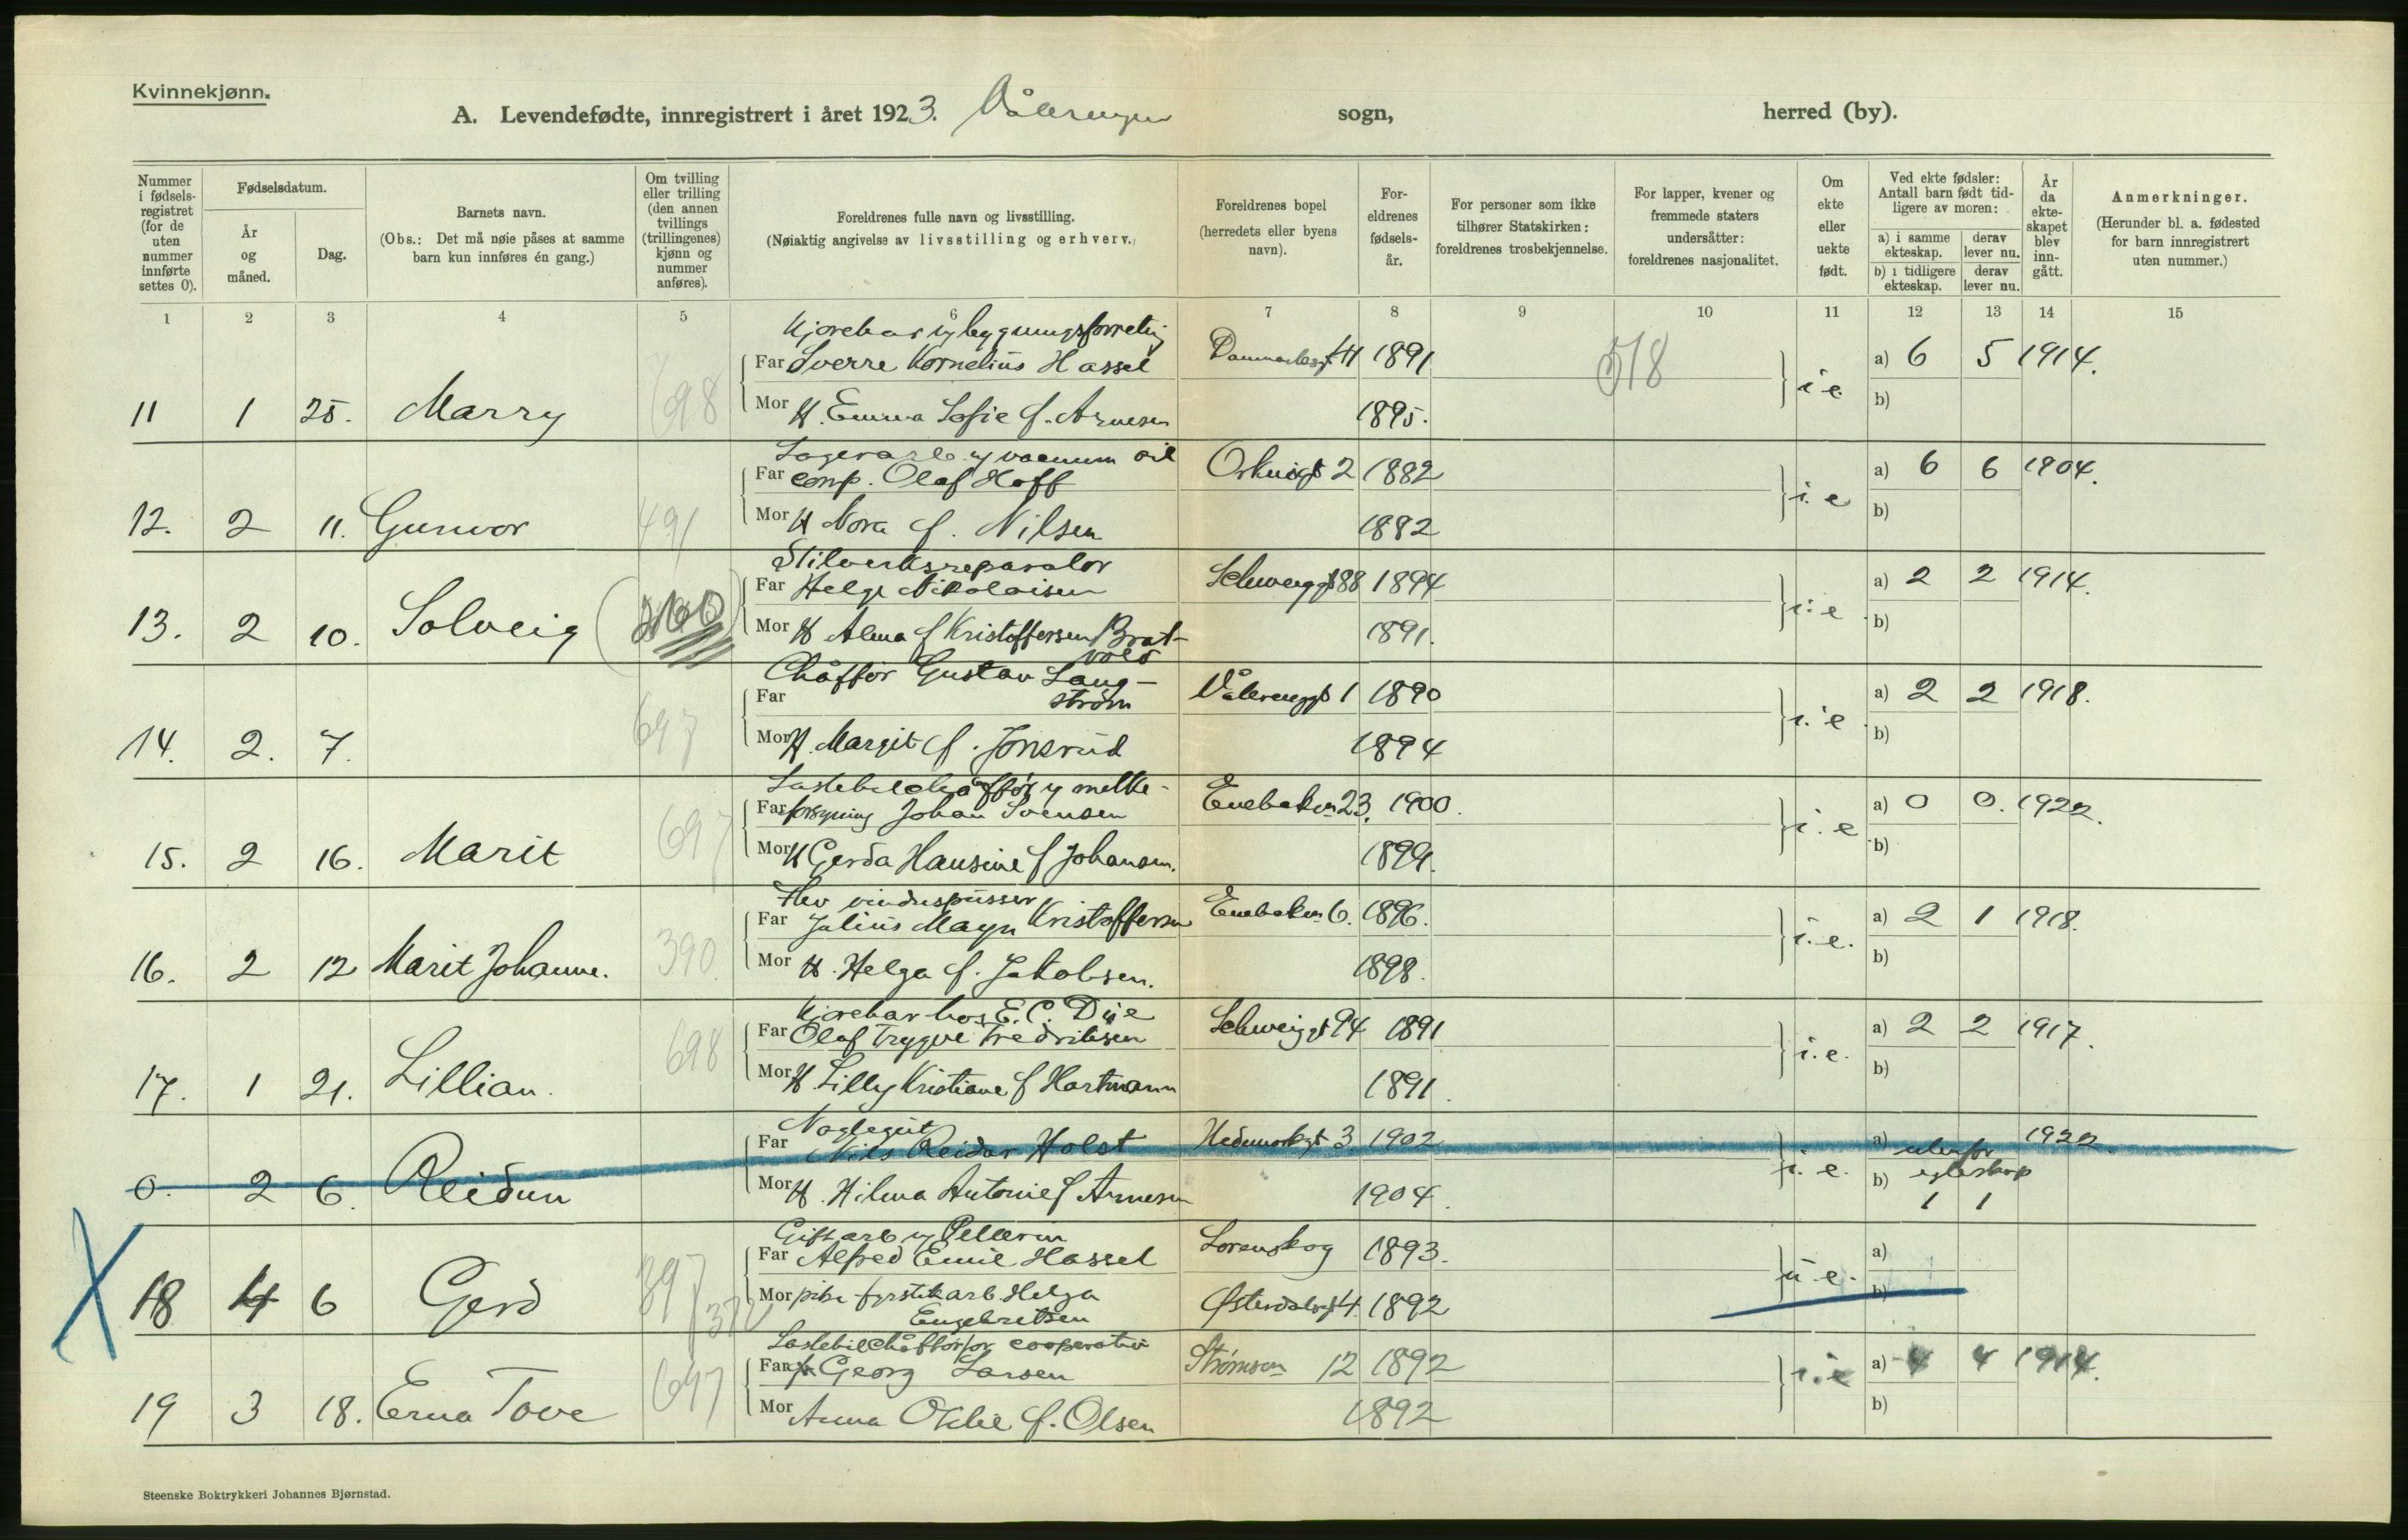 Kvinnekjønn.
A. Levendefødte, innregistrert i året 1923. Vålerengen sogn, herred (by).
Nummer i fødsels-registret (for de uten nummer innførte settes 0).
Fødselsdatum.
År og måned.
Dag.
Barnets navn.
(Obs.: Det må nøie påses at samme barn kun innføres én gang.)
Om tvilling eller trilling (den annen tvillings (trillingenes) kjønn og nummer anføres).
Foreldrenes fulle navn og livsstilling.
(Nøiaktig angivelse av livsstilling og erhverv.)
Foreldrenes bopel (herredets eller byens navn).
For-eldrenes fødsels-år.
For personer som ikke tilhører Statskirken: foreldrenes trosbekjennelse.
For lapper, kvener og fremmede staters undersåtter: foreldrenes nasjonalitet.
Om ekte eller uekte født.
Ved ekte fødsler: Antall barn født tid-ligere av moren:
a) i samme ekteskap. derav lever nu.
b) i tidligere ekteskap. derav lever nu.
År da ekte-skapet blev inn-gått.
Anmerkninger.
(Herunder bl. a. fødested for barn innregistrert uten nummer.)
1 2 3 4 5 6 7 8 9 10 11 12 13 14 15
Kjørekar
Far Sverre Kornelius Hassel 1891 518 a) 6 5 1914.
11 1 25. Marry 698 Mor H. Emma Sofie f. Arnesen 1895. i e b)
Lagerarb v vacuum oil
Far comp. Olaf Hoff 2 1882 a) 6 6 1904.
12. 2 11. Gunvor 491 Mor H Nora f. Nilsen 1882 i. e b)
Far Helge Nikolaisen Schweiggt 88 1894 a) 2 2 1914.
13. 2 10. Solveig Mor H Alma f Kristoffersen Brat-
vold 1891. i. e b)
Chåffør Gustav Lang-
Far strøm Vålerenggt 1 1890 a) 2 2 1918.
14. 2. 7. 697 Mor H. Margit f. Jonsrud 1894 i. e b)
Lastebilchåffør v melke-
Far forsyning Johan Svensen Enebakvn 23. 1900. a) 0 0. 1922.
15. 2 16. Marit 697 Mor H Gerda Hansine f Johansen. 1899. i. e b)
Hev vinduspusser
Far Julius Magn Kristoffersen Enebakvn 6. 1896. a) 2 1 1918.
16. 2 12 Marit Johanne. 390 Mor H. Helga f. Jakobsen. 1898. i. e. b)
Kjørekar hos E. C. Due
Far Olaf Trygve Fredriksen Schweiggt 94 1891 a) 2 2 1917.
17. 1 21. Lillian. 698 Mor H Lilly Kristiane f Hartmann 1891. i. e. b)
Far Nils Reidar Holst Hedmarkgt 3. 1902 a) utenfor 1922.
0. 2 6. Reidun Mor H. Hilma Antonie f Arnesen 1904. i. e. b) egteskap
1 1
Gift arb v Pellerin
Far Alfred Emil Hassel Lorenskog 1893. a)
18 4 6 Gerd 397 Mor pike fyrstikarb Helga Østerdalsgt 4. 1892 u. e. b)
Engebretsen
Lastebilchåffør for cooperativ
Far Georg Larsen Strømsvn 12 1892 a) 4 4 1914.
19 3 18. Erna Tove 697 Mor Anna Otilie f. Olsen 1892 i. e b)
Steenske Boktrykkeri Johannes Bjørnstad.